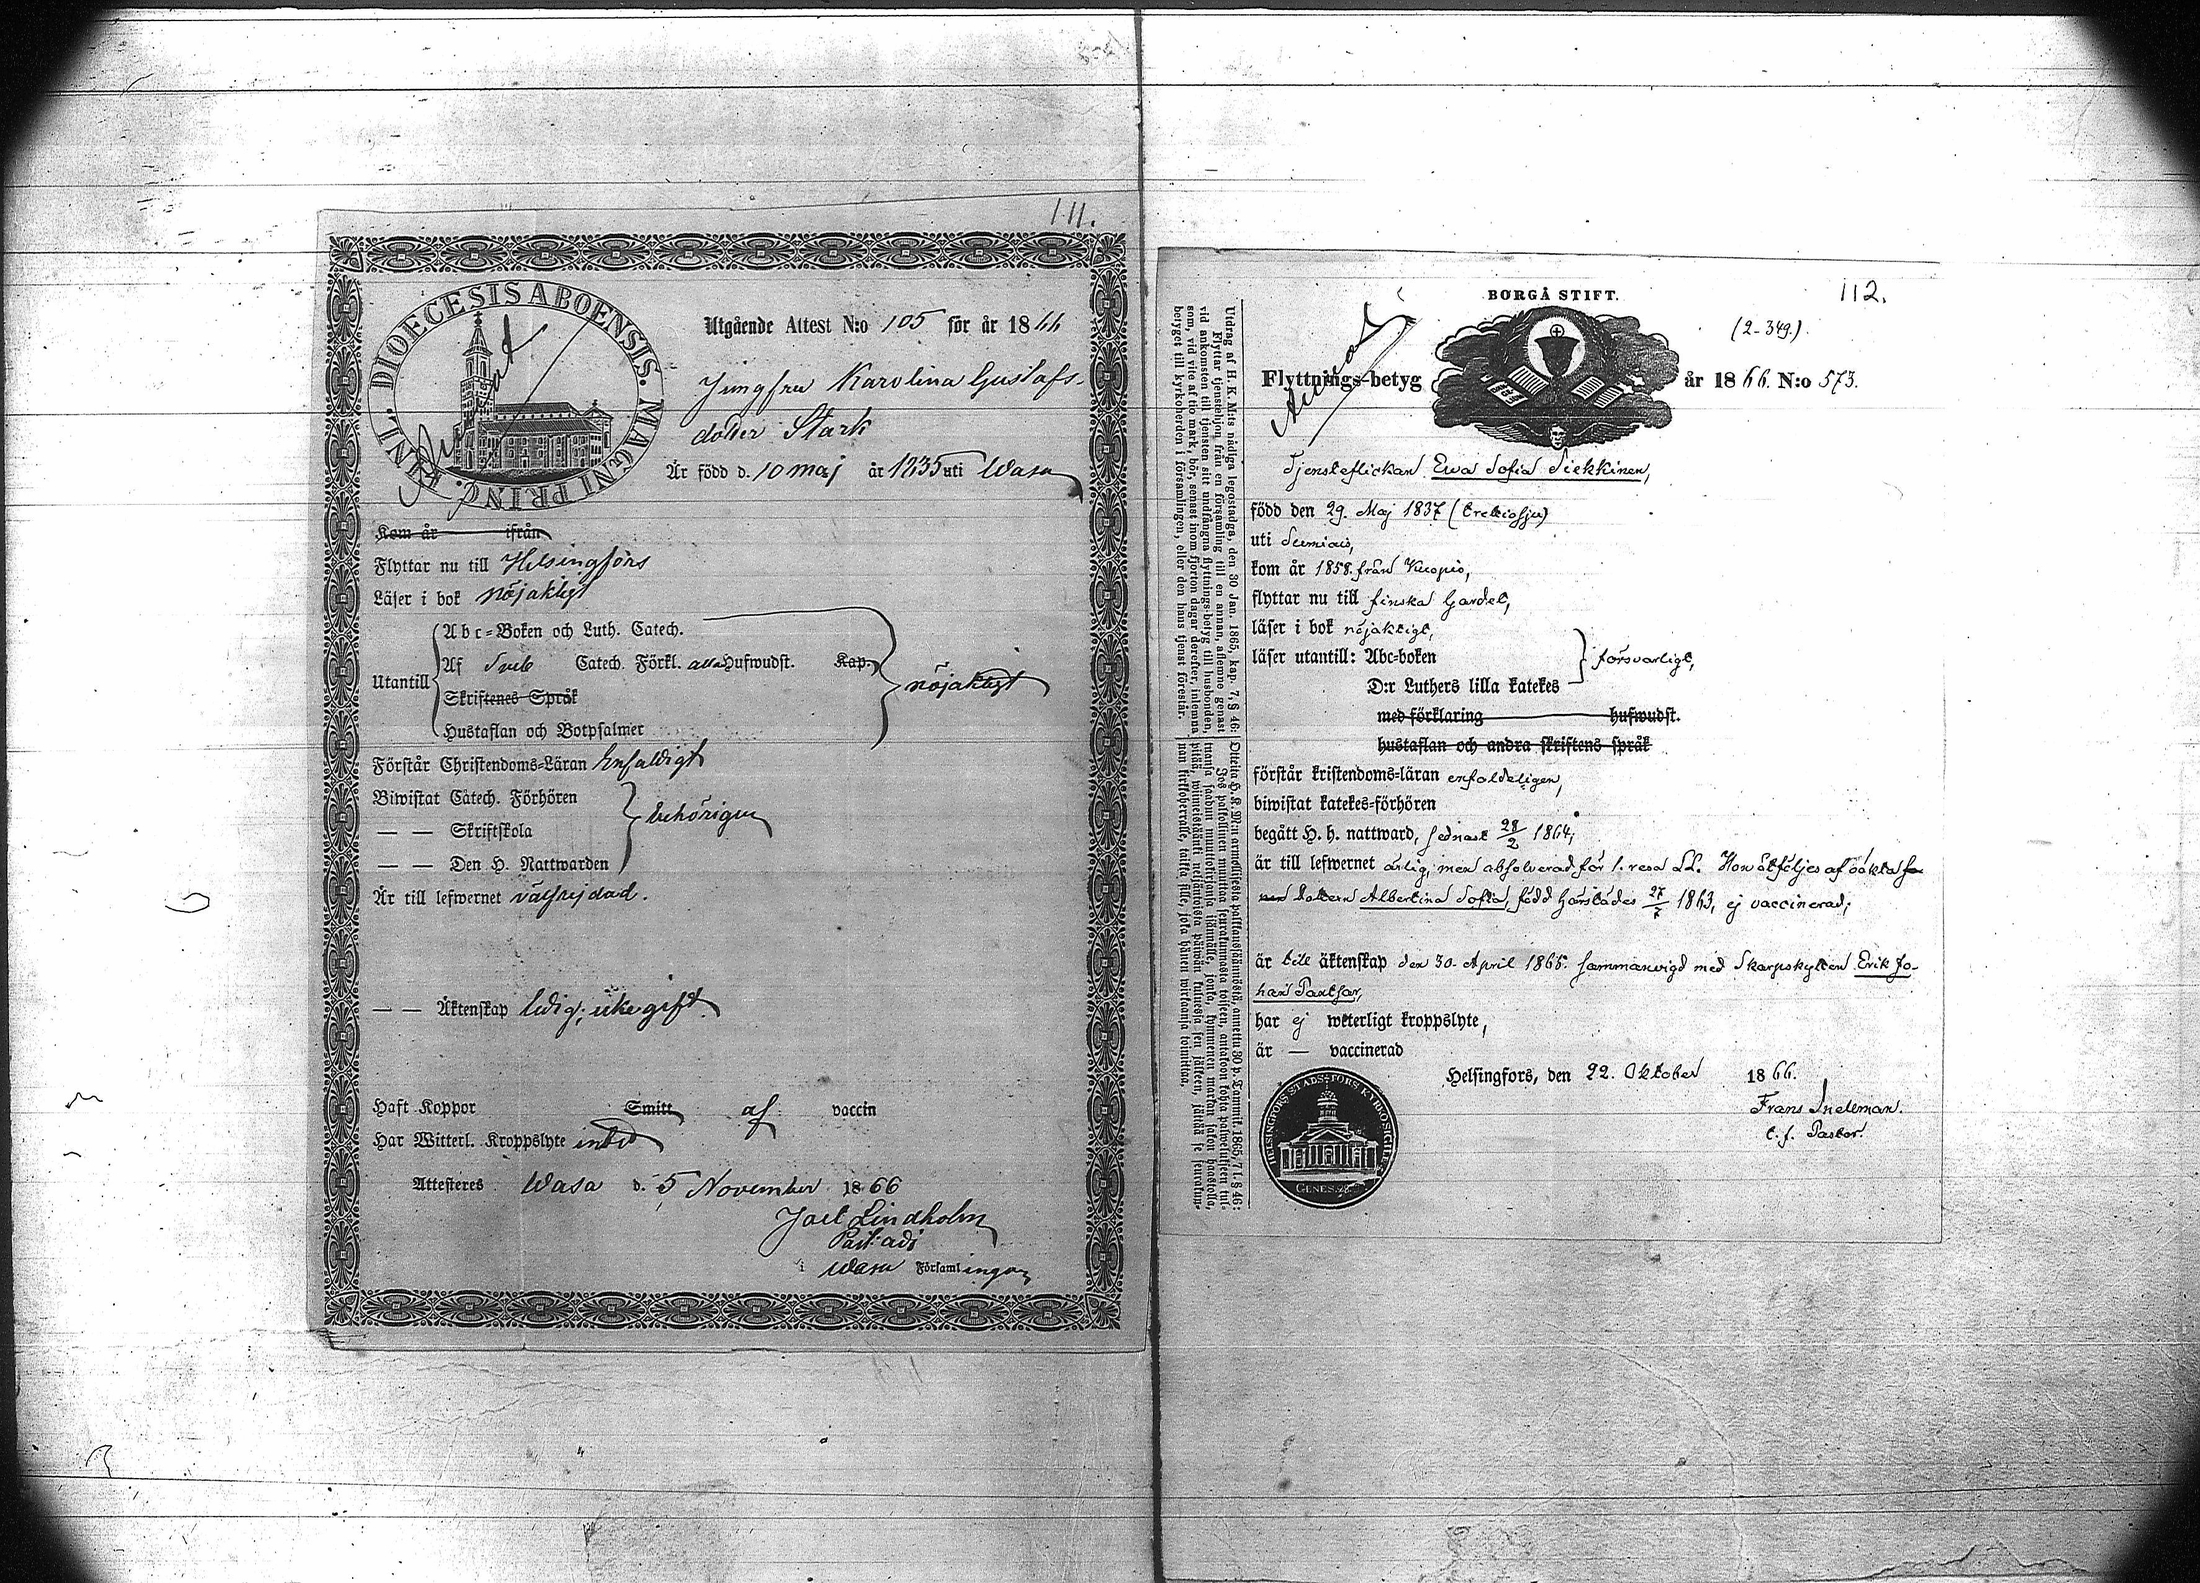 111.
DIOECESIS ABOENSIS. MAGNI PRINC. FINL.
Utgående Attest N:o 105 for år 1866
Jungfru Karolina Gustafs-
dotter Stark
Är född d. 10 maj år 1835 uti Wasa
Kom år ifrån
Flyttar nu till Helsingfors
Läser i bok nöjaktigt
Utantill
Abc-Boken och Luth. Catech.
Af Sveb Catech. Förkl. alla Hufwudst. Kap.
Skriftenes Språk
Hustaflan och Botpsalmer
nöjaktigt
Förstår Christendoms-Läran Enfaldigt
Biwistat Catech. Förhören
— — Skriftskola
— — Den H. Nattwarden
behörigen
Är till lefwernet välfrejdad.
— — Äktenskap ledig; icke gift.
Haft Koppor Smitt af vaccin
Har Witterl. Kroppslyte intet
Attesteres Wasa d. 5 November 1866
Joel Lindholm
Past. adj
i Wasa Församlingen
112.
BORGÅ STIFT.
(2-349.)
Flyttnings-betyg år 1866. N:o 573.
Tjensteflickan Ewa Sofia Siekkinen,
född den 29. Maj 1837
uti Sumiais,
kom år 1858. från Kuopio,
flyttar nu till finska Gardet,
läser i bok nöjaktigt,
läser utantill: Abc-boken
D:r Luthers lilla katekes
försvarligt,
med förklaring hufwudst.
hustaflan och andra skriftens språk
förstår kristendoms-läran enfaldeligen,
biwistat katekes-förhören
begått H. h. nattward, sednast 28/2 1864;
är till lefwernet ärlig, men absolverad för 1. resa LS. Hon åtföljes af oäkta
dottern Albertina Sofia, född härstädes 27/7 1863, ej vaccinerad;
är till äktenskap den 30. April 1865. sammanvigd med Skarpskytten Erik Jo-
han Partfar,
har ej weterligt kroppslyte,
är — vaccinerad
Helsingfors, den 22. Oktober 1866.
Frans
t. f. Pastor.
HELSINGFORS STADS-FÖRS. KYRKOSIGILL
GENES. 28.
Utdrag af H. K. M:s nådiga legostadga, den 30 Jan. 1865, kap. 7, § 46:
Flyttar tjenstehjon från en församling till en annan, aflemne genast
vid ankomsten till tjensten sitt undfångna flyttnings-betyg till husbonden,
som, vid vite af tio mark, bör, senast inom fjorton dagar derefter, inlemna
betyget till kyrkoherden i församlingen, eller den hans tjenst förestår.